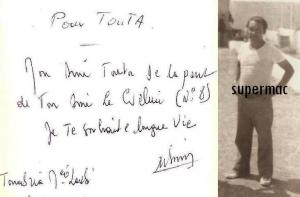 Pour TOUTA
Mon Ami Touta de la part
de Ton Ami Le (N°8)
Je Te souhaite longue Vie
supermac